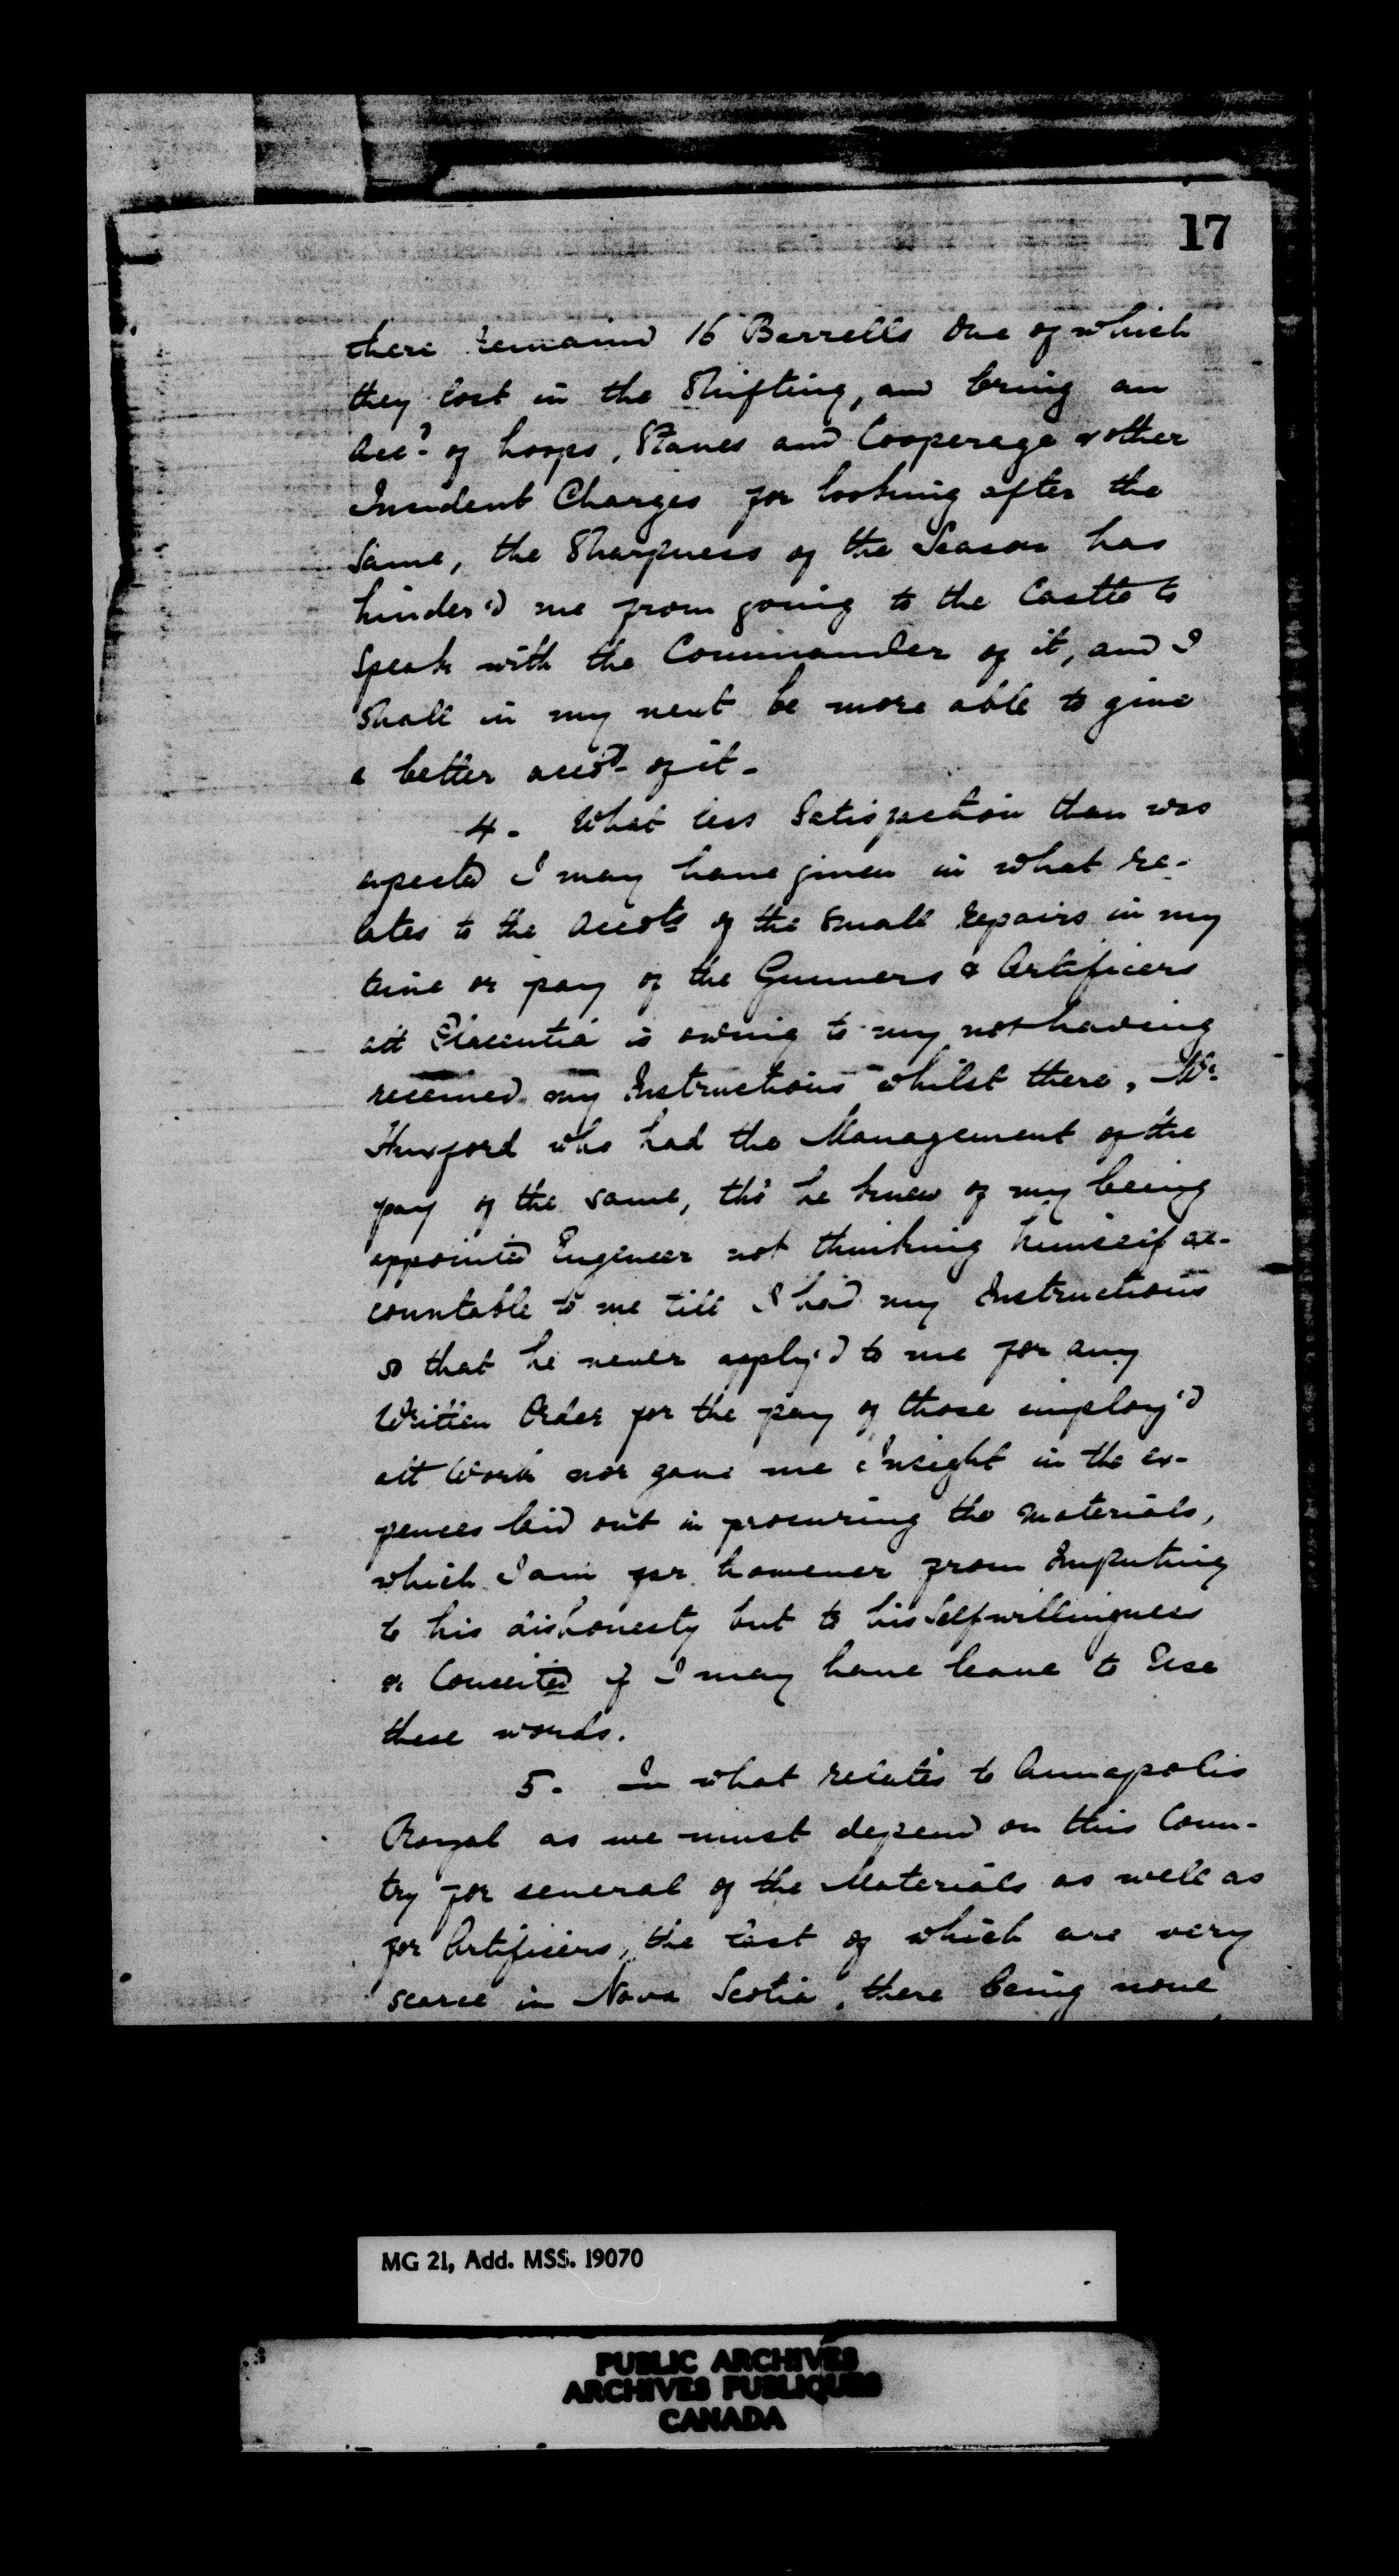 17
there remain'd 16 Barrells One of which
they lost in the Shifting, and bring an
Acc.t of hoops, Staves and Cooperage & other
Incident Charges for looking after the
Same, the Sharpness of the Season has
hinder'd me from going to the Castle to
Speak with the Commander of it, and I
Shall in my next be more able to give
a better acco.t of it -
4 - What less Satisfaction than was
expected I may have given in what re-
lates to the Acco.ts of the Small Repairs in my
time or pay of the Gunners & Artificers
att Placentia is owing to my not having
received my Instructions whilst there, Mr.
Huxford who had the Management of the
pay of the same, tho' he knew of my being
appointed Engineer not thinking himself ac-
countable to me till I had my Instructions
so that he never apply'd to me for any
Written Order for the pay of those employ'd
att Work nor gave me Insight in the ex-
pences laid out in procuring the Materials,
which I am far however from Imputing
to his dishonesty but to his Selfwillingness
or Conceited if I may have leave to Use
these words.
5 - In what relates to Annapolis
Royal as we must depend on this Coun-
try for several of the Materials as well as
for Artificers, the last of which are very
scarce in Nova Scotia, there being none
MG 21, Add. MSS. 19070
PUBLIC ARCHIVES
ARCHIVES PUBLIQUES
CANADA